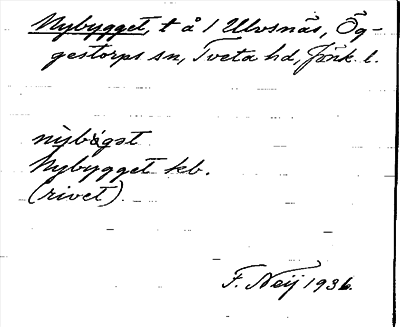 Nybygget, t å 1 Ulvsnäs, Ög-
gestorps sn, Tveta hd, Jönk. l.
nybögst
Nybygget kb.
(rivet).
F. Neij 1936.